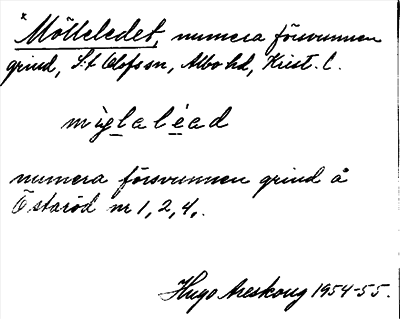 *Mölleledet, numera försvunnen
grind, S:t Olofs sn, Albo hd, Krist. l.
numera försvunnen grind å
Östaröd nr 1, 2, 4.
Hugo Areskoug 1954-55.